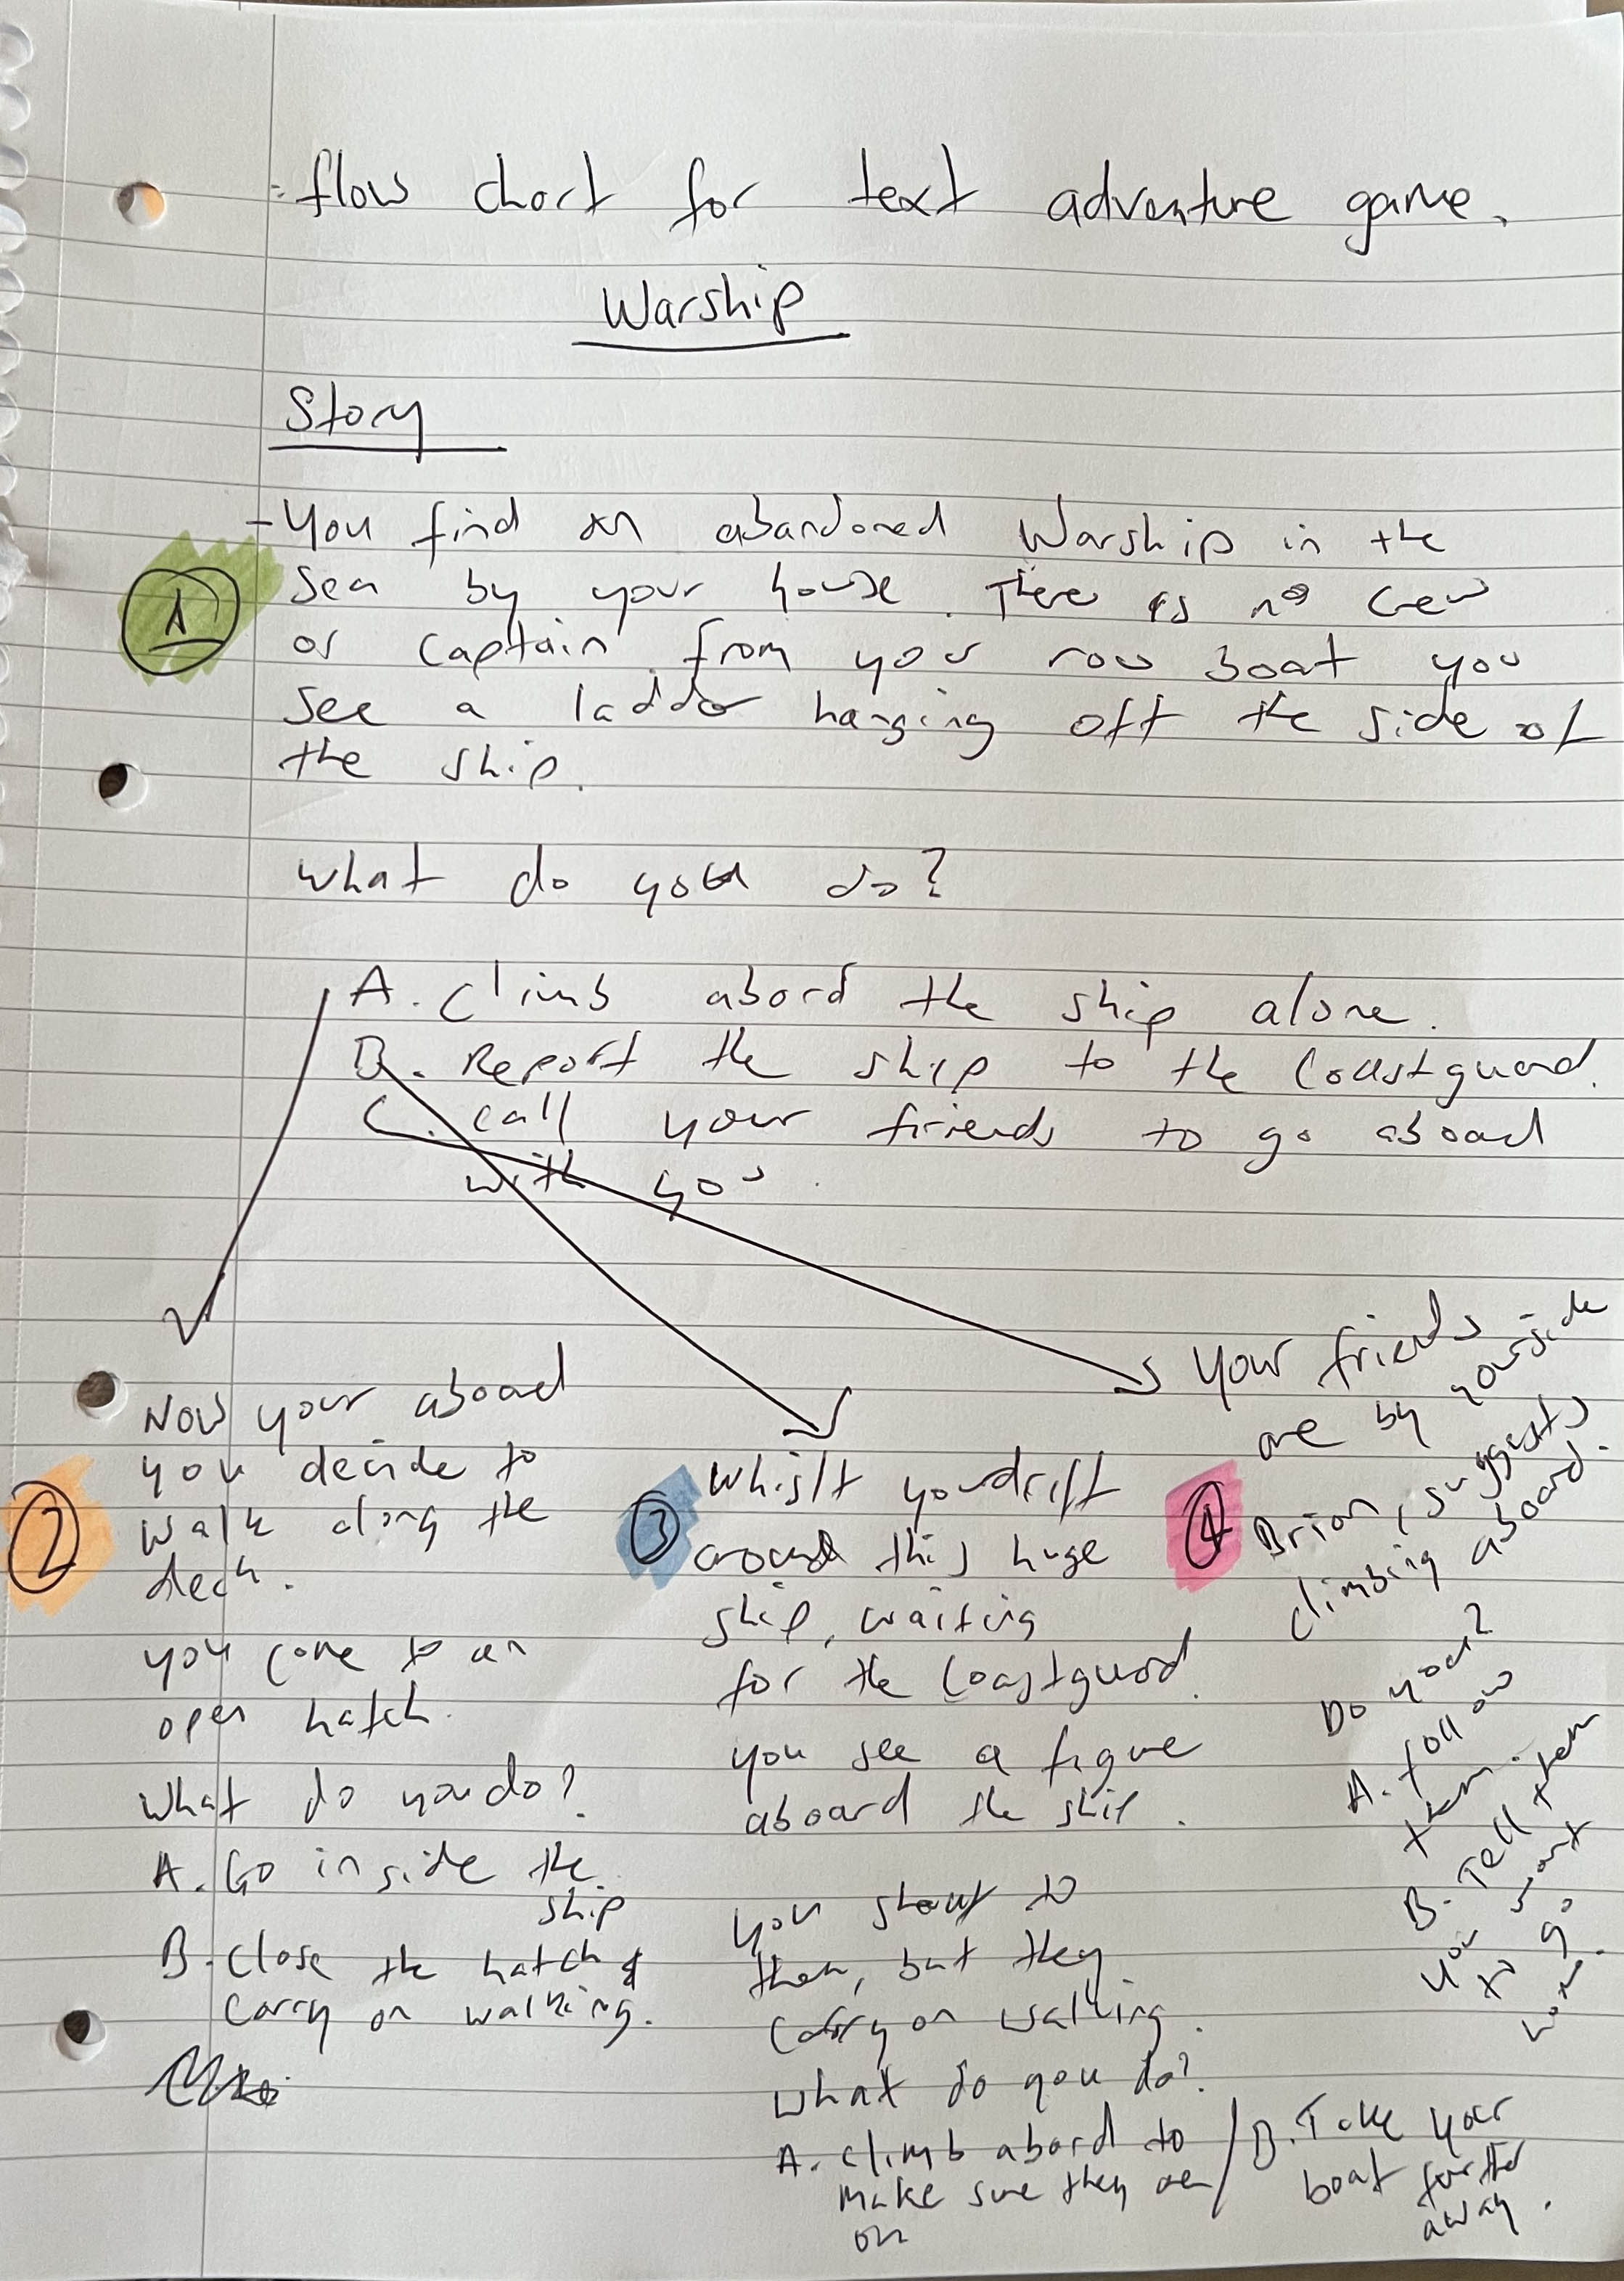 flow chart for text adventure game.
Warship
Story
- You find an abandoned Warship in the
1
sea by your house. There is no crew
or captain. from your row boat you
see a ladder hanging off the side of
the ship.
what do you do?
A. Climb abord the ship alone.
B. Report the ship to the Coastguard.
C. call your friends to go aboard
with you.
Now your aboard
you decide to
walk along the
deck.
2
you come to an
open hatch.
What do you do?
A. Go inside the
ship
B. Close the hatch &
carry on walking.
3
Whislt you drift
around this huge
ship, waiting
for the Coastguard.
you see a figure
aboard the ship.
you shout to
them, but they
carry on walking.
What do you do?
A. climb abord to
make sure they are
on
B. Take your
boat further
away.
4
Your friends
are by yourside
Brian, suggests
climbing aboard.
Do you?
A. follow
them.
B. Tell them
you want
to go